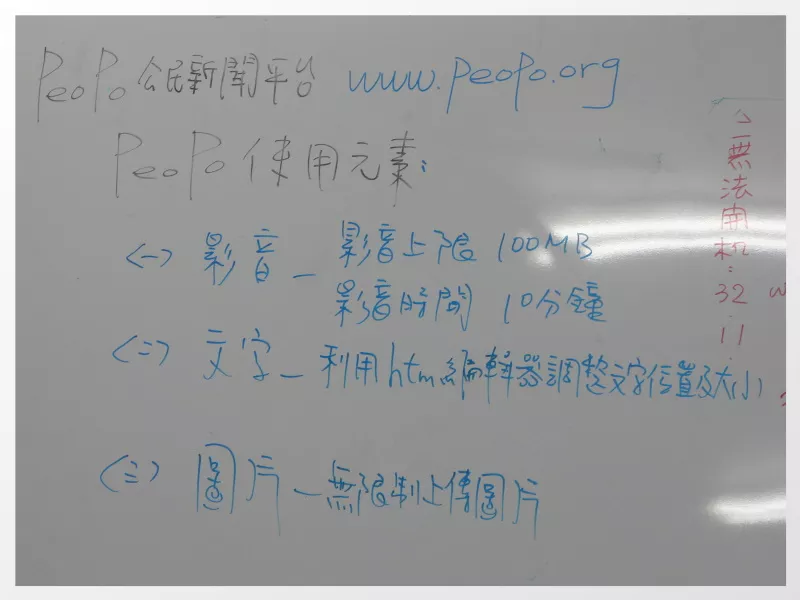 PeoPo 公民新聞平台 www.peopo.org
PeoPo 使用元素:
<一> 影音 - 影音上限 100MB
影音時間 10分鐘
<二> 文字 - 利用htm編輯器調整文字位置及大小
<三> 圖片 - 無限制上傳圖片
無法開机:
32 w
11